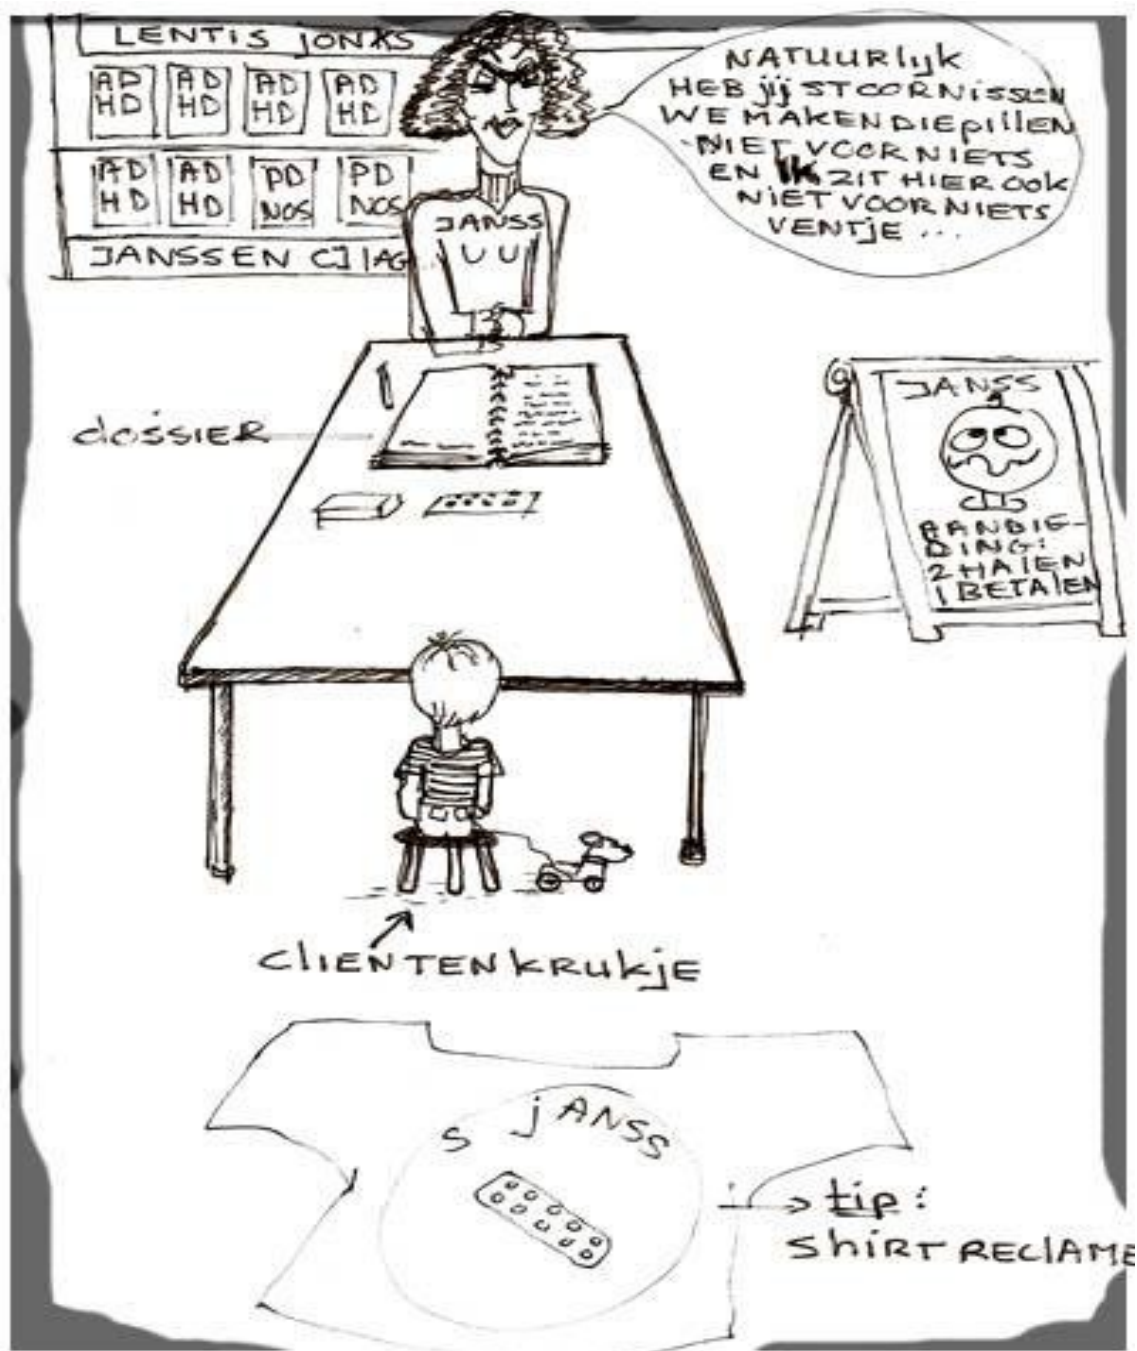 LENTIS JONKS
AD HD AD HD AD HD AD HD
AD HD AD HD PD NOS PD NOS
JANSSEN CJ AG
NATUURlijk
HEB jij STOORNISSEN
WE MAKEN DIE pillEN
NIET VOOR NIETS
EN IK ZIT HIER OOK
NIET VOOR NIETS
VENTjE ...
JANSS
dossiER
JANSS
AANBIE-
DING:
2 HAlEN
1 BETAlEN
cliENTENkRukjE
S jANSS
tip:
ShiRT REClAME